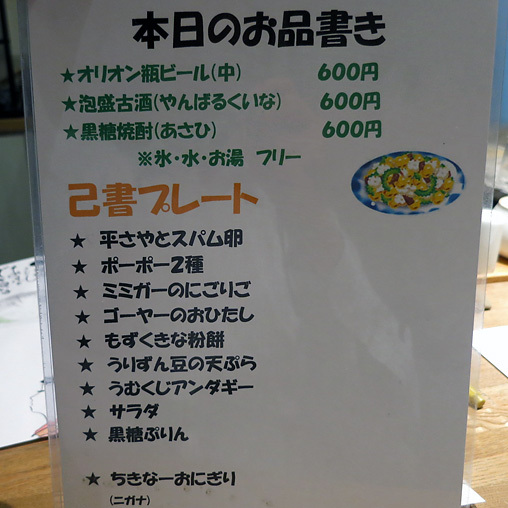 本日のお品書き
★オリオン瓶ビール(中) 600円
★泡盛古酒(やんばるくいな) 600円
★黒糖焼酎(あさひ) 600円
※氷・水・お湯 フリー
己書プレート
★ 平さやとスパム卵
★ ポーポー2種
★ ミミガーのにごりご
★ ゴーヤーのおひたし
★ もずくきな粉餅
★ うりずん豆の天ぷら
★ うむくじアンダギー
★ サラダ
★ 黒糖ぷりん
★ ちきなーおにぎり
(ニガナ)